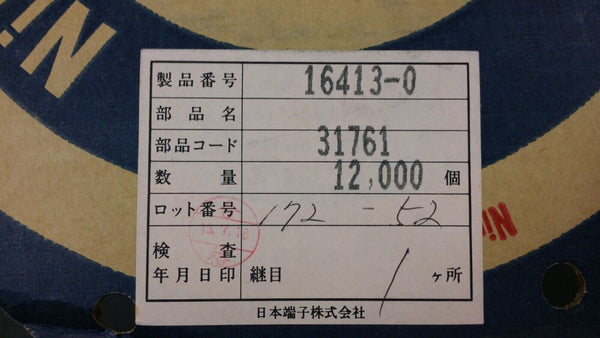 Ni
製品番号 16413-0
部品名
部品コード 31761
数量 12,000 個
ロット番号 172-52
検査
年月日印 継目 1 ヶ所
日本端子株式会社
Ni